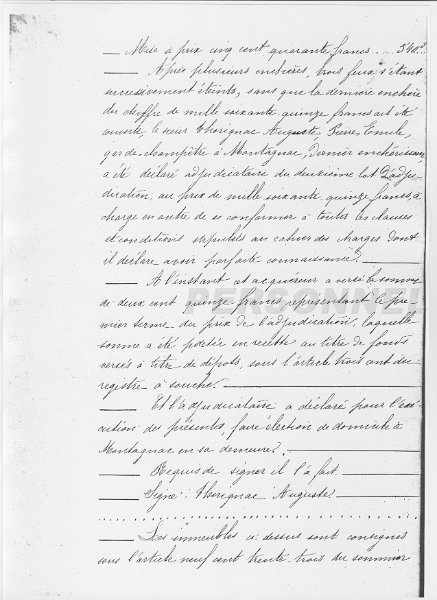 Mise à prix cinq cent quarante francs... 540f
Après plusieurs enchères, trois feux s'étant
successivement éteints, sans que la dernière enchère
du chiffre de mille soixante quinze francs ait été
couverte, le sieur Therignac Auguste, Pierre, Emile,
garde-champêtre à Montagnac, dernier enchérisseur
a été déclaré adjudicataire du deuxième lot d'adju-
dication, au prix de mille soixante quinze francs, à
charge en outre de se conformer à toutes les clauses
et conditions stipulées au cahier des charges dont
il déclare avoir parfaite connaissance.
A l'instant et acquéreur a versé la somme
de deux cent quinze francs, représentant le pre-
mier terme du prix de l'adjudication, laquelle
somme a été portée en recette au titre de fonds
versés à titre de dépots, sous l'article trois cent du
registre à souche.
Et l'adjudicataire a déclaré pour l'exé-
cution des présentes, faire élection de domicile à
Montagnac en sa demeure.
Requis de signer il l'a fait
Signé: Therignac Auguste
Les immeubles ci-dessus sont consignés
sous l'article neuf cent trente-trois du sommier
PERSONNEL